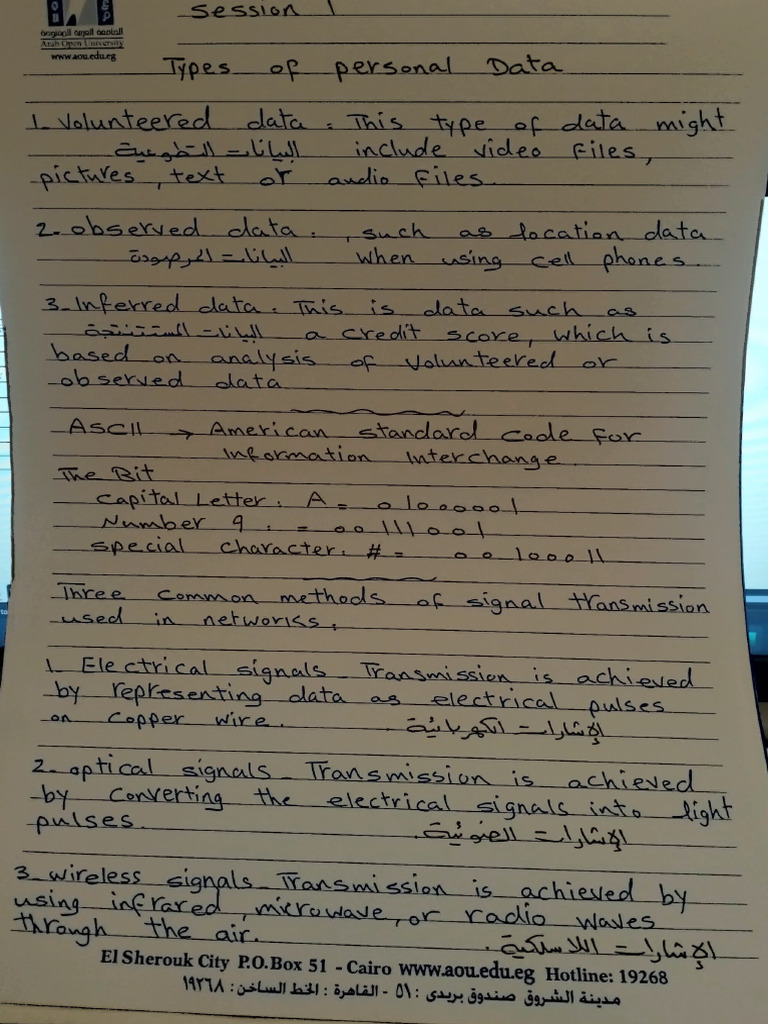 Session 1
الجامعة العربية المفتوحة
Arab Open University
www.aou.edu.eg
Types of personal Data
1- Volunteered data: This type of data might
البيانات التطوعية include video files,
pictures, text or audio files.
2- observed data: , such as location data
البيانات المرصودة when using cell phones.
3- Inferred data: This is data such as
البيانات المستنتجة a credit score, which is
based on analysis of volunteered or
observed data
ASCII → American standard code for
Information Interchange
The Bit
Capital Letter: A = 01000001
Number 9 : = 00111001
special character: # = 00100011
Three common methods of signal transmission
used in networks:
1- Electrical signals_ Transmission is achieved
by representing data as electrical pulses
on copper wire. الإشارات الكهربائية
2- optical signals_ Transmission is achieved
by converting the electrical signals into light
pulses. الإشارات الضوئية
3- wireless signals_ Transmission is achieved by
using infrared, microwave, or radio waves
through the air. الإشارات اللاسلكية.
El Sherouk City P.O.Box 51 - Cairo www.aou.edu.eg Hotline: 19268
مدينة الشروق صندوق بريدى : ٥١ - القاهرة : الخط الساخن : ١٩٢٦٨